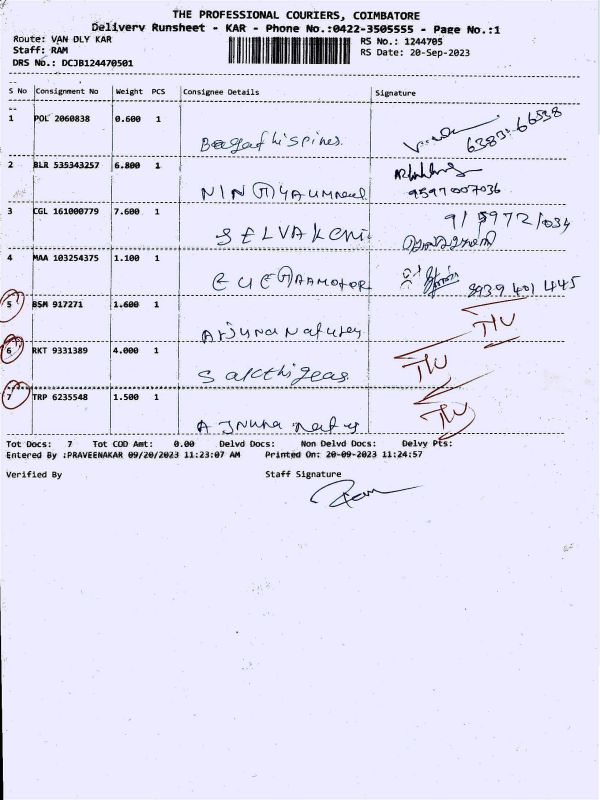 THE PROFESSIONAL COURIERS, COIMBATORE
Delivery Runsheet - KAR - Phone No.:0422-3505555 - Page No.:1
Route: VAN DLY KAR RS No.: 1244705
Staff: RAM RS Date: 20-Sep-2023
DRS No.: DCJB124470501
S No Consignment No Weight PCS Consignee Details Signature
1 POL 2060838 0.600 1
2 BLR 535343257 6.800 1
9597007036
3 CGL 161000779 7.600 1
SELVA
4 MAA 103254375 1.100 1
8939 401 445
5 BSM 917271 1.600 1
Arjuna
6 RKT 9331389 4.000 1
Sakthi geas
7 TRP 6235548 1.500 1
Tot Docs: 7 Tot COD Amt: 0.00 Delvd Docs: Non Delvd Docs: Delvy Pts:
Entered By :PRAVEENAKAR 09/20/2023 11:23:07 AM Printed On: 20-09-2023 11:24:57
Verified By Staff Signature
Ram